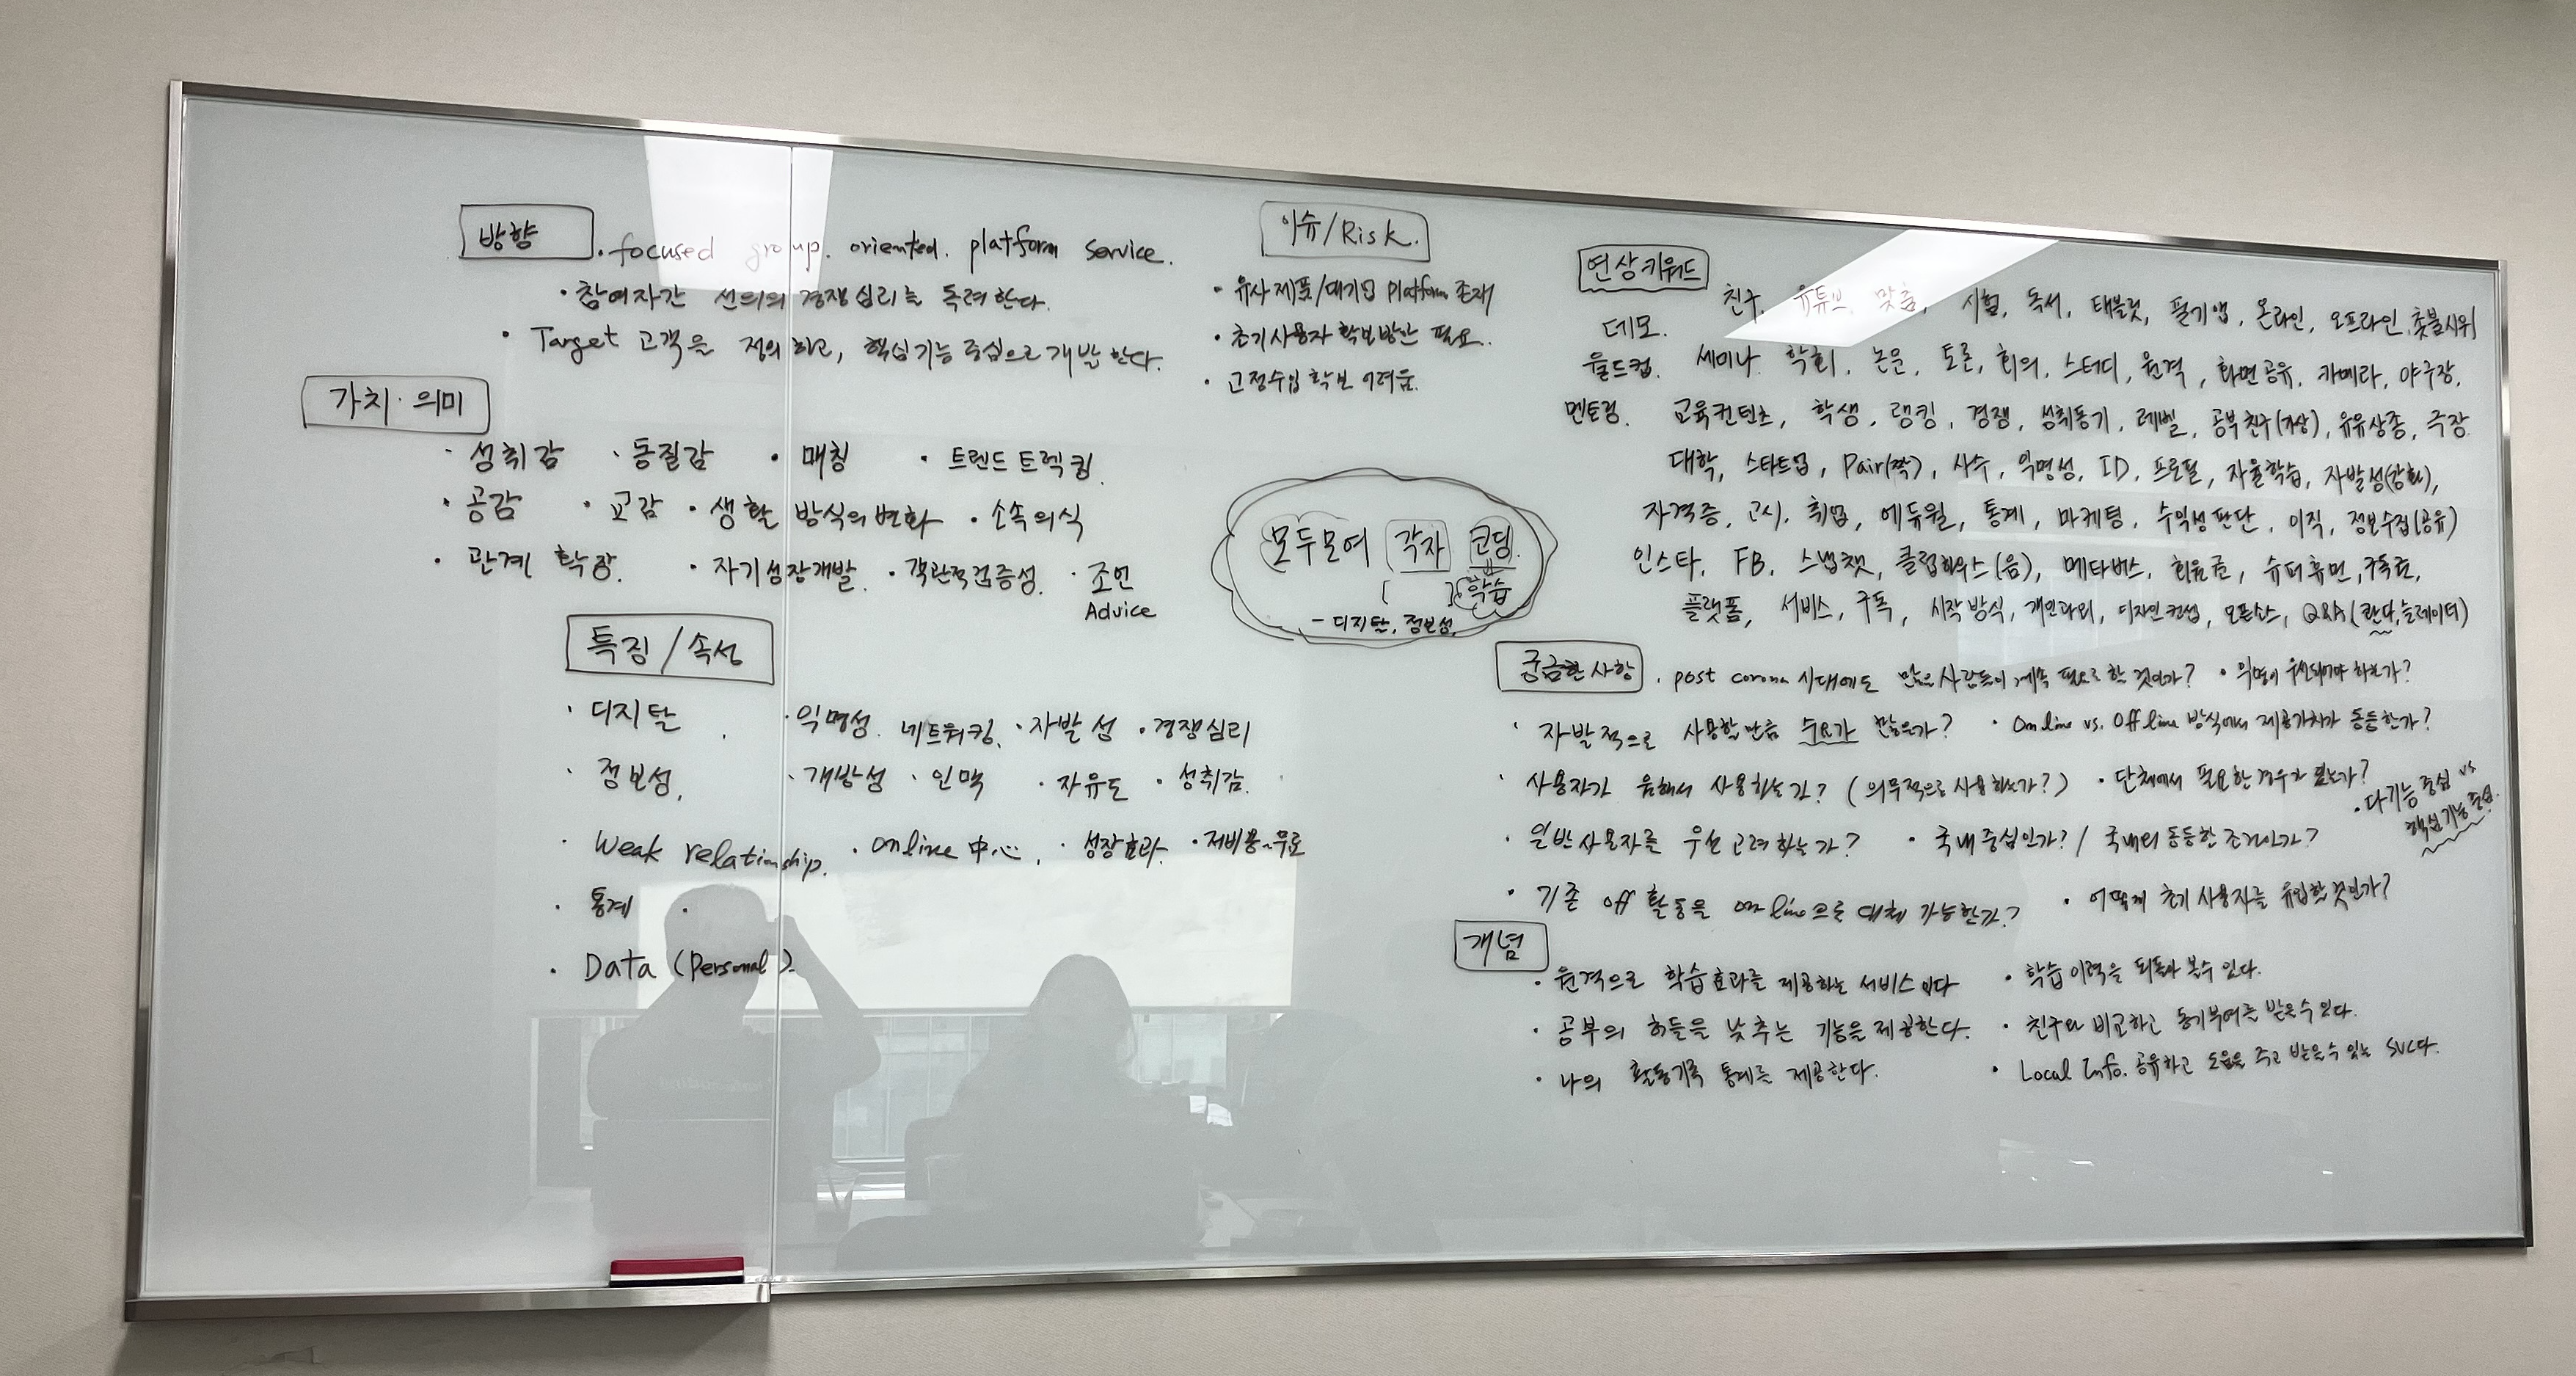 방향
· focused group. oriented. platform service.
· 참여자간 선의의 경쟁심리를 독려한다.
· Target 고객을 정의하고, 핵심기능 중심으로 개발한다.
가치·의미
· 성취감 · 동질감 · 매칭 · 트렌드 트렉킹
· 공감 · 교감 · 생활 방식의 변화 · 소속의식
· 관계 확장. · 자기성장개발 · 객관적검증성 · 조언
Advice
특징/속성
· 디지털 · 익명성 네트워킹. · 자발성 · 경쟁심리
· 정보성. · 개방성 · 인맥 · 자유도 · 성취감
· Weak relationship. · online 中心. · 성장효과 · 저비용~무료
· 통계 ·
· Data (Personal)
이슈/Risk.
· 유사제품/대기업 platform 존재
· 초기사용자 확보방안 필요.
· 고정수입 확보 어려움.
모두모여 각자 코딩.
학습
- 디지털, 정보성,
연상키워드
친구, 유튜브, 맞춤, 시험, 독서, 태블릿, 필기앱, 온라인, 오프라인, 촛불시위
데모.
월드컵. 세미나 학회, 논문, 토론, 회의, 스터디, 원격, 화면공유, 카메라, 야구장,
멘토링. 교육컨텐츠, 학생, 랭킹, 경쟁, 성취동기, 레벨, 공부친구(가상), 유유상종, 극장
대학, 스타트업, Pair(짝), 사수, 익명성, ID, 프로필, 자율학습, 자발성(강화),
자격증, 고시, 취업, 에듀윌, 통계, 마케팅, 수익성 판단, 이직, 정보수집(공유)
인스타, FB, 스냅챗, 클럽하우스(음), 메타버스, 회원권, 슈퍼휴먼, 구독료,
플랫폼, 서비스, 구독, 시작방식, 개인과외, 디자인컨셉, 오픈소스, Q&A(콴다,
궁금한사항 · post corona 시대에도 많은사람들이 계속 필요로 할 것인가? · 익명이 우선되어야 하는가?
· 자발적으로 사용할만큼 수요가 많은가? · Online vs. Offline 방식에서 제공가치가 동등한가?
· 사용자가 원해서 사용하는가? (의무적으로 사용하는가?) · 단체에서 필요한 경우가 있는가?
· 다기능 중심 vs
핵심기능 중심.
· 일반사용자를 우선 고려하는가? · 국내중심인가? / 국내외 동등한 조건인가?
· 기존 off 활동을 online으로 대체 가능한가? · 어떻게 초기 사용자를 유입할 것인가?
개념
· 원격으로 학습효과를 제공하는 서비스이다 · 학습이력을 되돌아 볼수 있다.
· 공부의 허들을 낮추는 기능을 제공한다. · 친구와 비교하고 동기부여를 받을수 있다.
· 나의 활동기록 통계를 제공한다. · Local Info. 공유하고 도움을 주고 받을수 있는 SVC다.